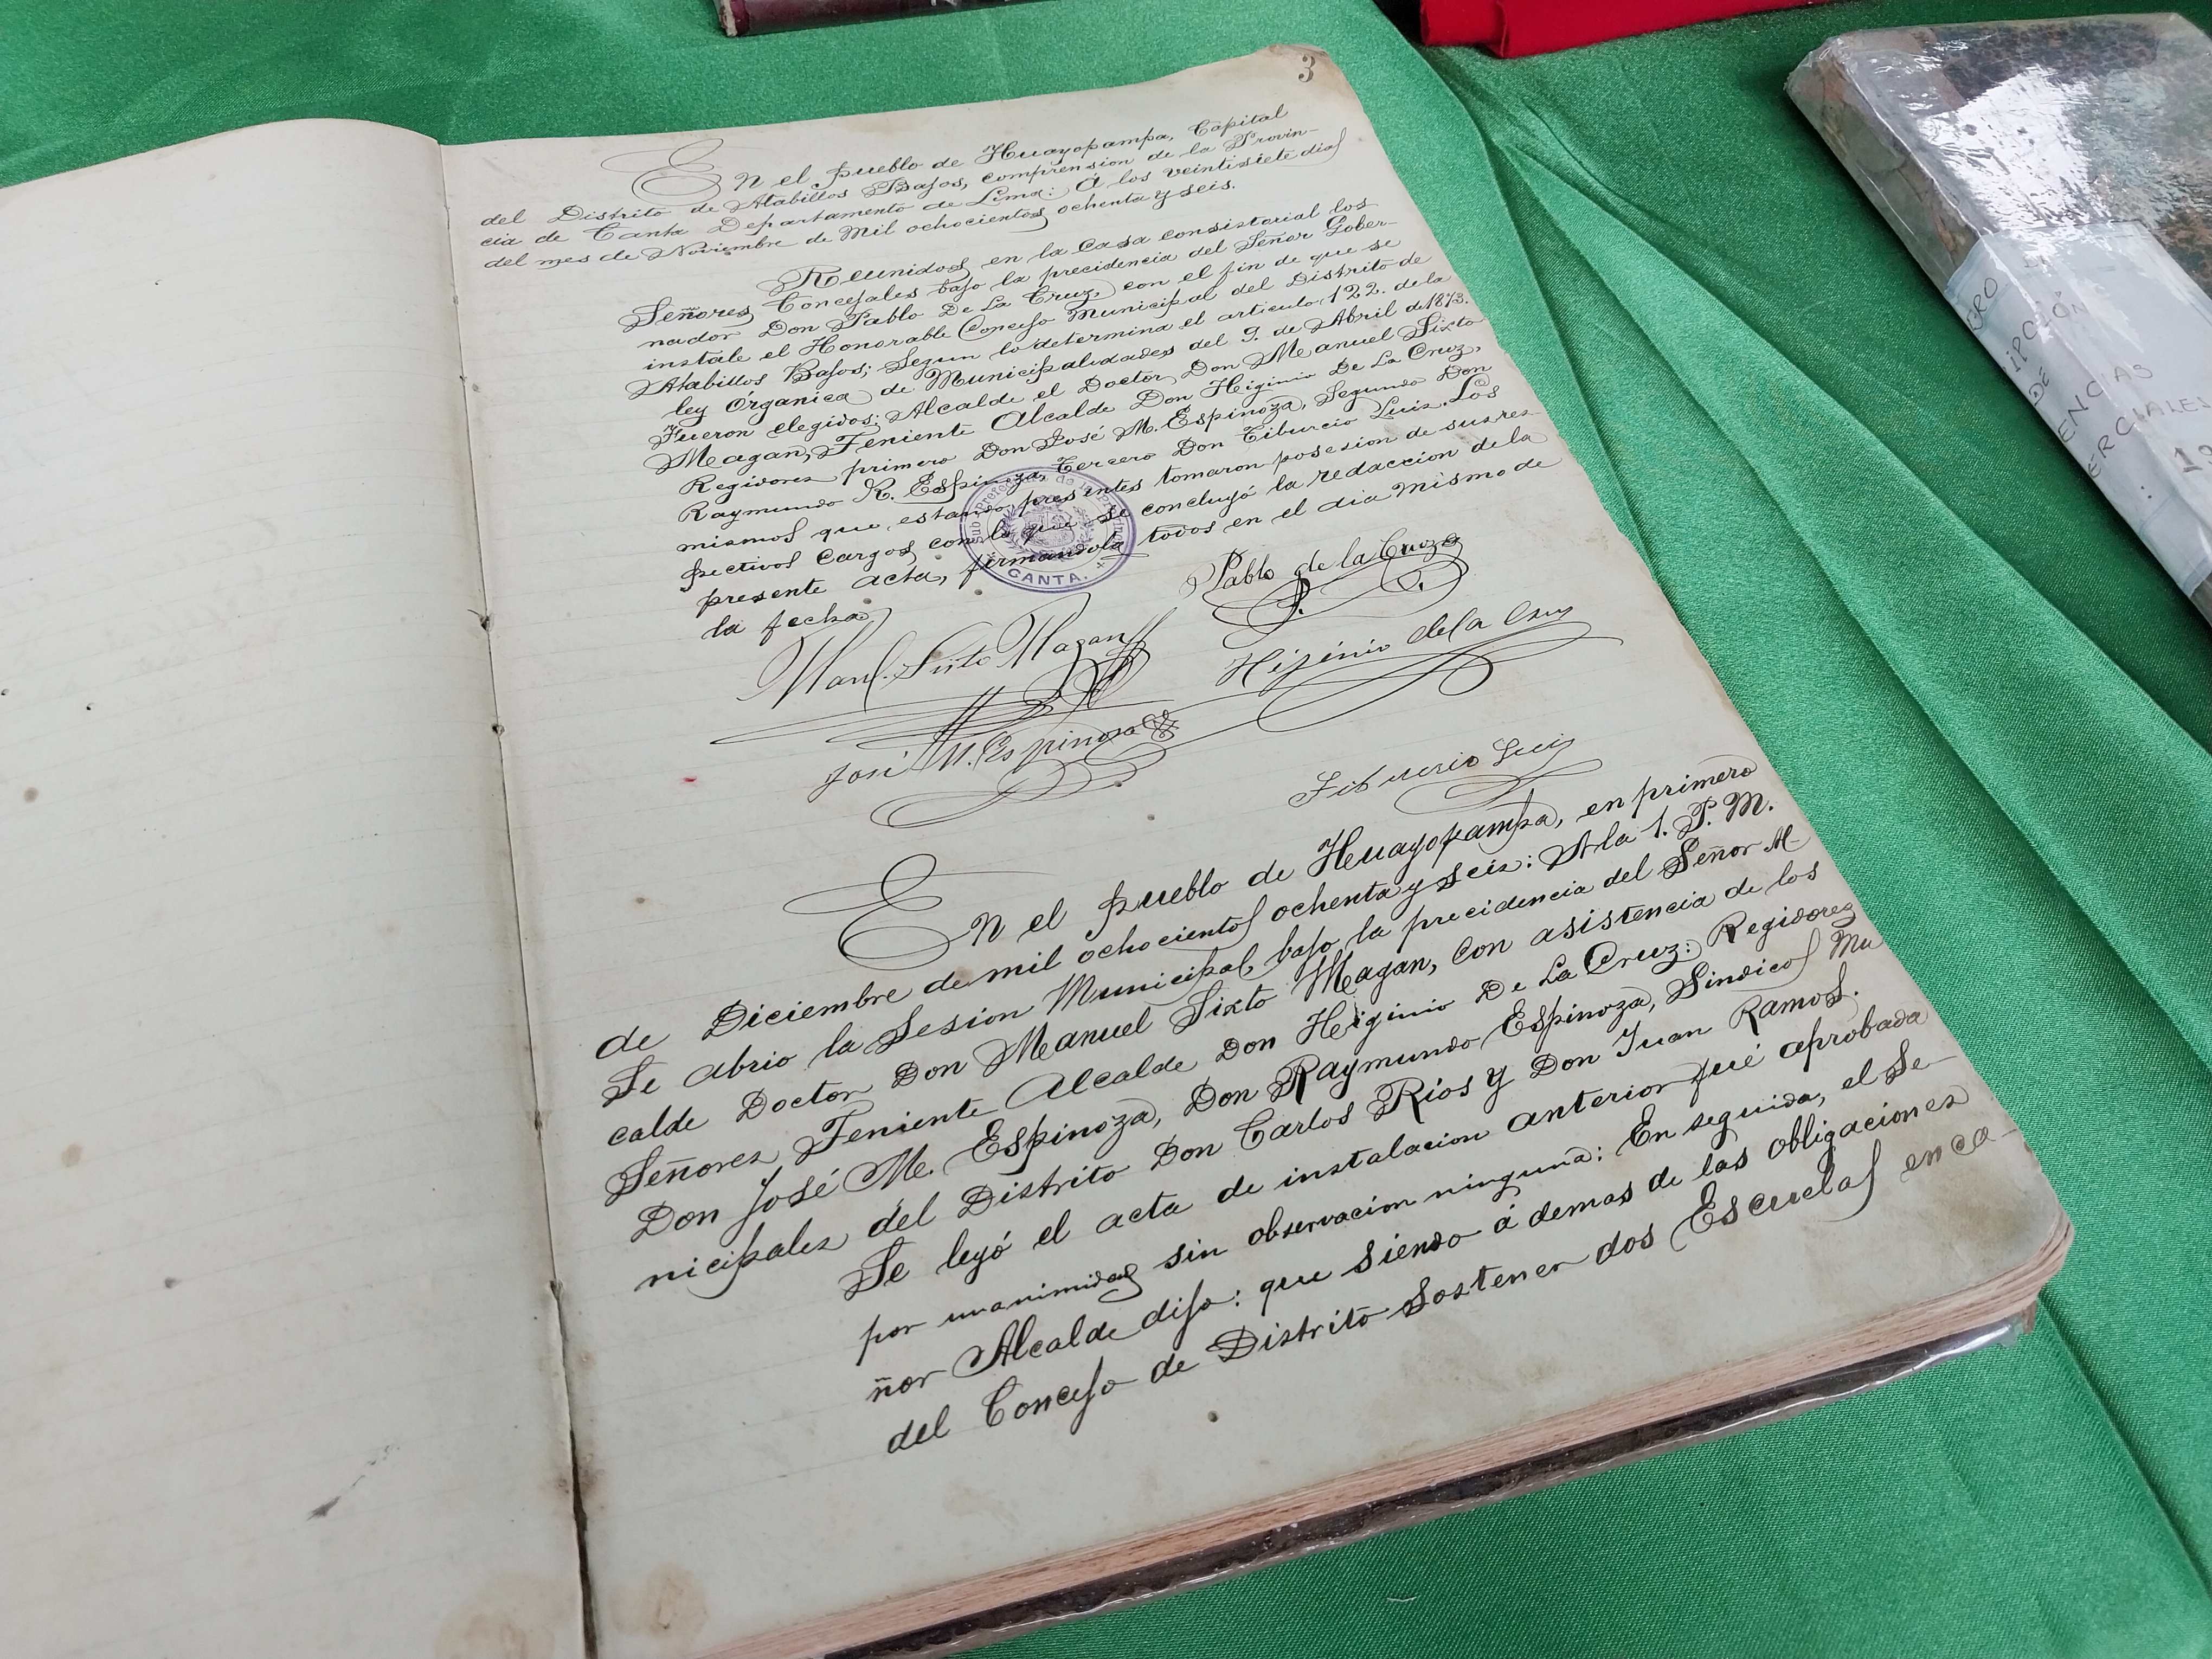 3
En el pueblo de Huayopampa, Capital
del Distrito de Atabillos Bajos, comprension de la Provin-
cia de Canta Departamento de Lima: Á los veintisiete dias
del mes de Noviembre de Mil ochocientos ochenta y seis.
Reunidos en la Casa consistorial los
Señores Concejales bajo la precidencia del Señor Gober-
nador Don Pablo De La Cruz, con el fin de que se
instale el Honorable Concejo Municipal del Distrito de
Atabillos Bajos; Segun lo determina el articulo 122. de la
ley Órganica de Municipalidades del 9. de Abril d 1873.
Fueron elegidos: Alcalde el Doctor Don Manuel Sixto
Meagan, Teniente Alcalde Don Higinio De La Cruz,
Regidores primero Don José M. Espinoza, Segundo Don
Raymundo R. Espinoza, Tercero Don Tiburcio Luis. Los
mismos que estando presentes tomaron posesion de sus res-
pectivos cargos, con lo que se concluyó la redaccion de la
presente acta, firmandola todos en el dia mismo de
la fecha
CANTA.
Pablo de la Cruz
Manl. Sixto Magan
Higinio de la Cruz
José M. Espinoza
Tiburcio Luis
En el pueblo de Huayopampa, en primero
de Diciembre de mil ochocientos ochenta y seis: A la 1. P. M.
Se abrio la Sesion Municipal, bajo la precidencia del Señor Al-
calde Doctor Don Manuel Sixto Magan, con asistencia de los
Señores Teniente Alcalde Don Higinio De La Cruz: Regidores
Don José M. Espinoza, Don Raymundo Espinoza, Sindicos Mu
nicipales del Distrito Don Carlos Ríos y Don Juan Ramos.
Se leyó el acta de instalacion anterior fué aprobada
por unanimidad sin observacion ninguna: En seguida, el Se-
ñor Alcalde dijo: que siendo á demas de las obligaciones
del Concejo de Distrito Sostener dos Escuelas en ca-
DE